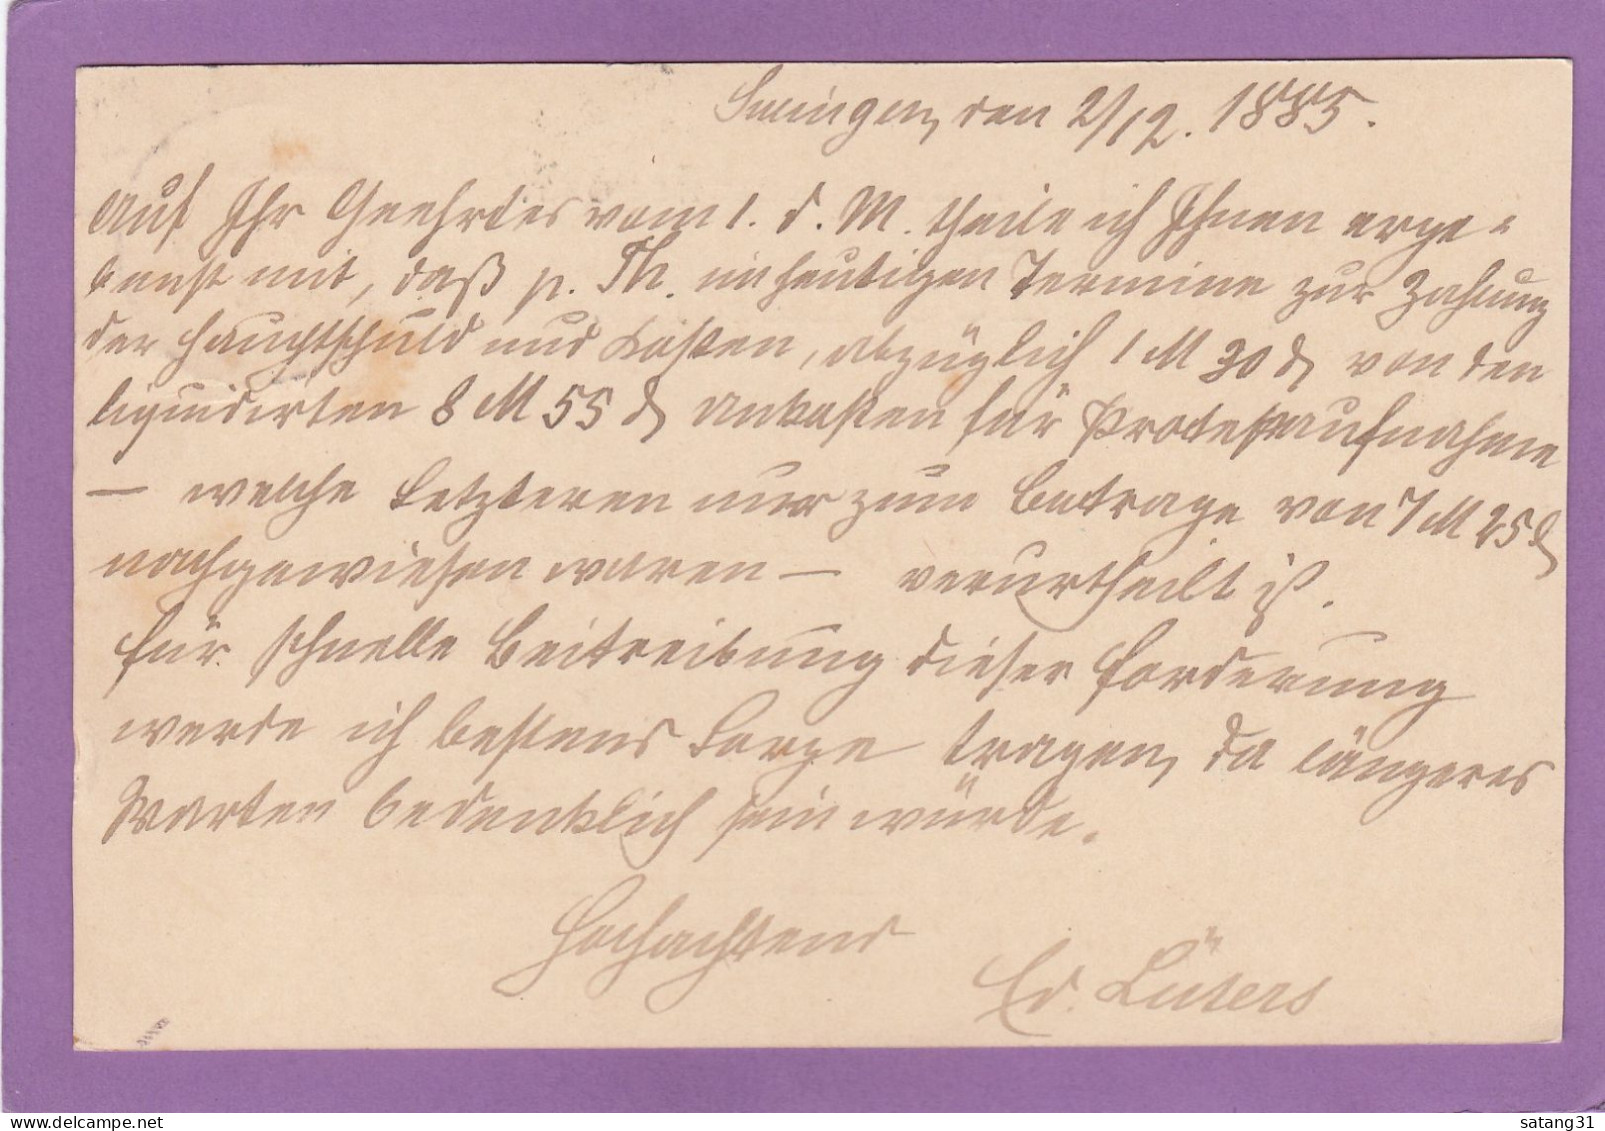 den 2/12. 1885.
Auf Ihr Geehrtes vom 1. d. M. theile ich Ihnen erge-
benst mit, daß p. Th. im heutigen Termine zur Zahlung
der Hauptschuld und Kosten, abzüglich 1 M 30 ₰ von den
liquidirten 8 M 55 ₰ Unkosten für Protestaufnahme
— welche Letzteren nur zum Betrage von 7 M 25 ₰
nachgewiesen waren — verurtheilt ist.
Für schnelle Beitreibung dieser Forderung
werde ich bestens Sorge tragen, da längeres
Warten bedenklich sein würde.
Hochachtend
Ed. Lüters
satang31
delcampe.net